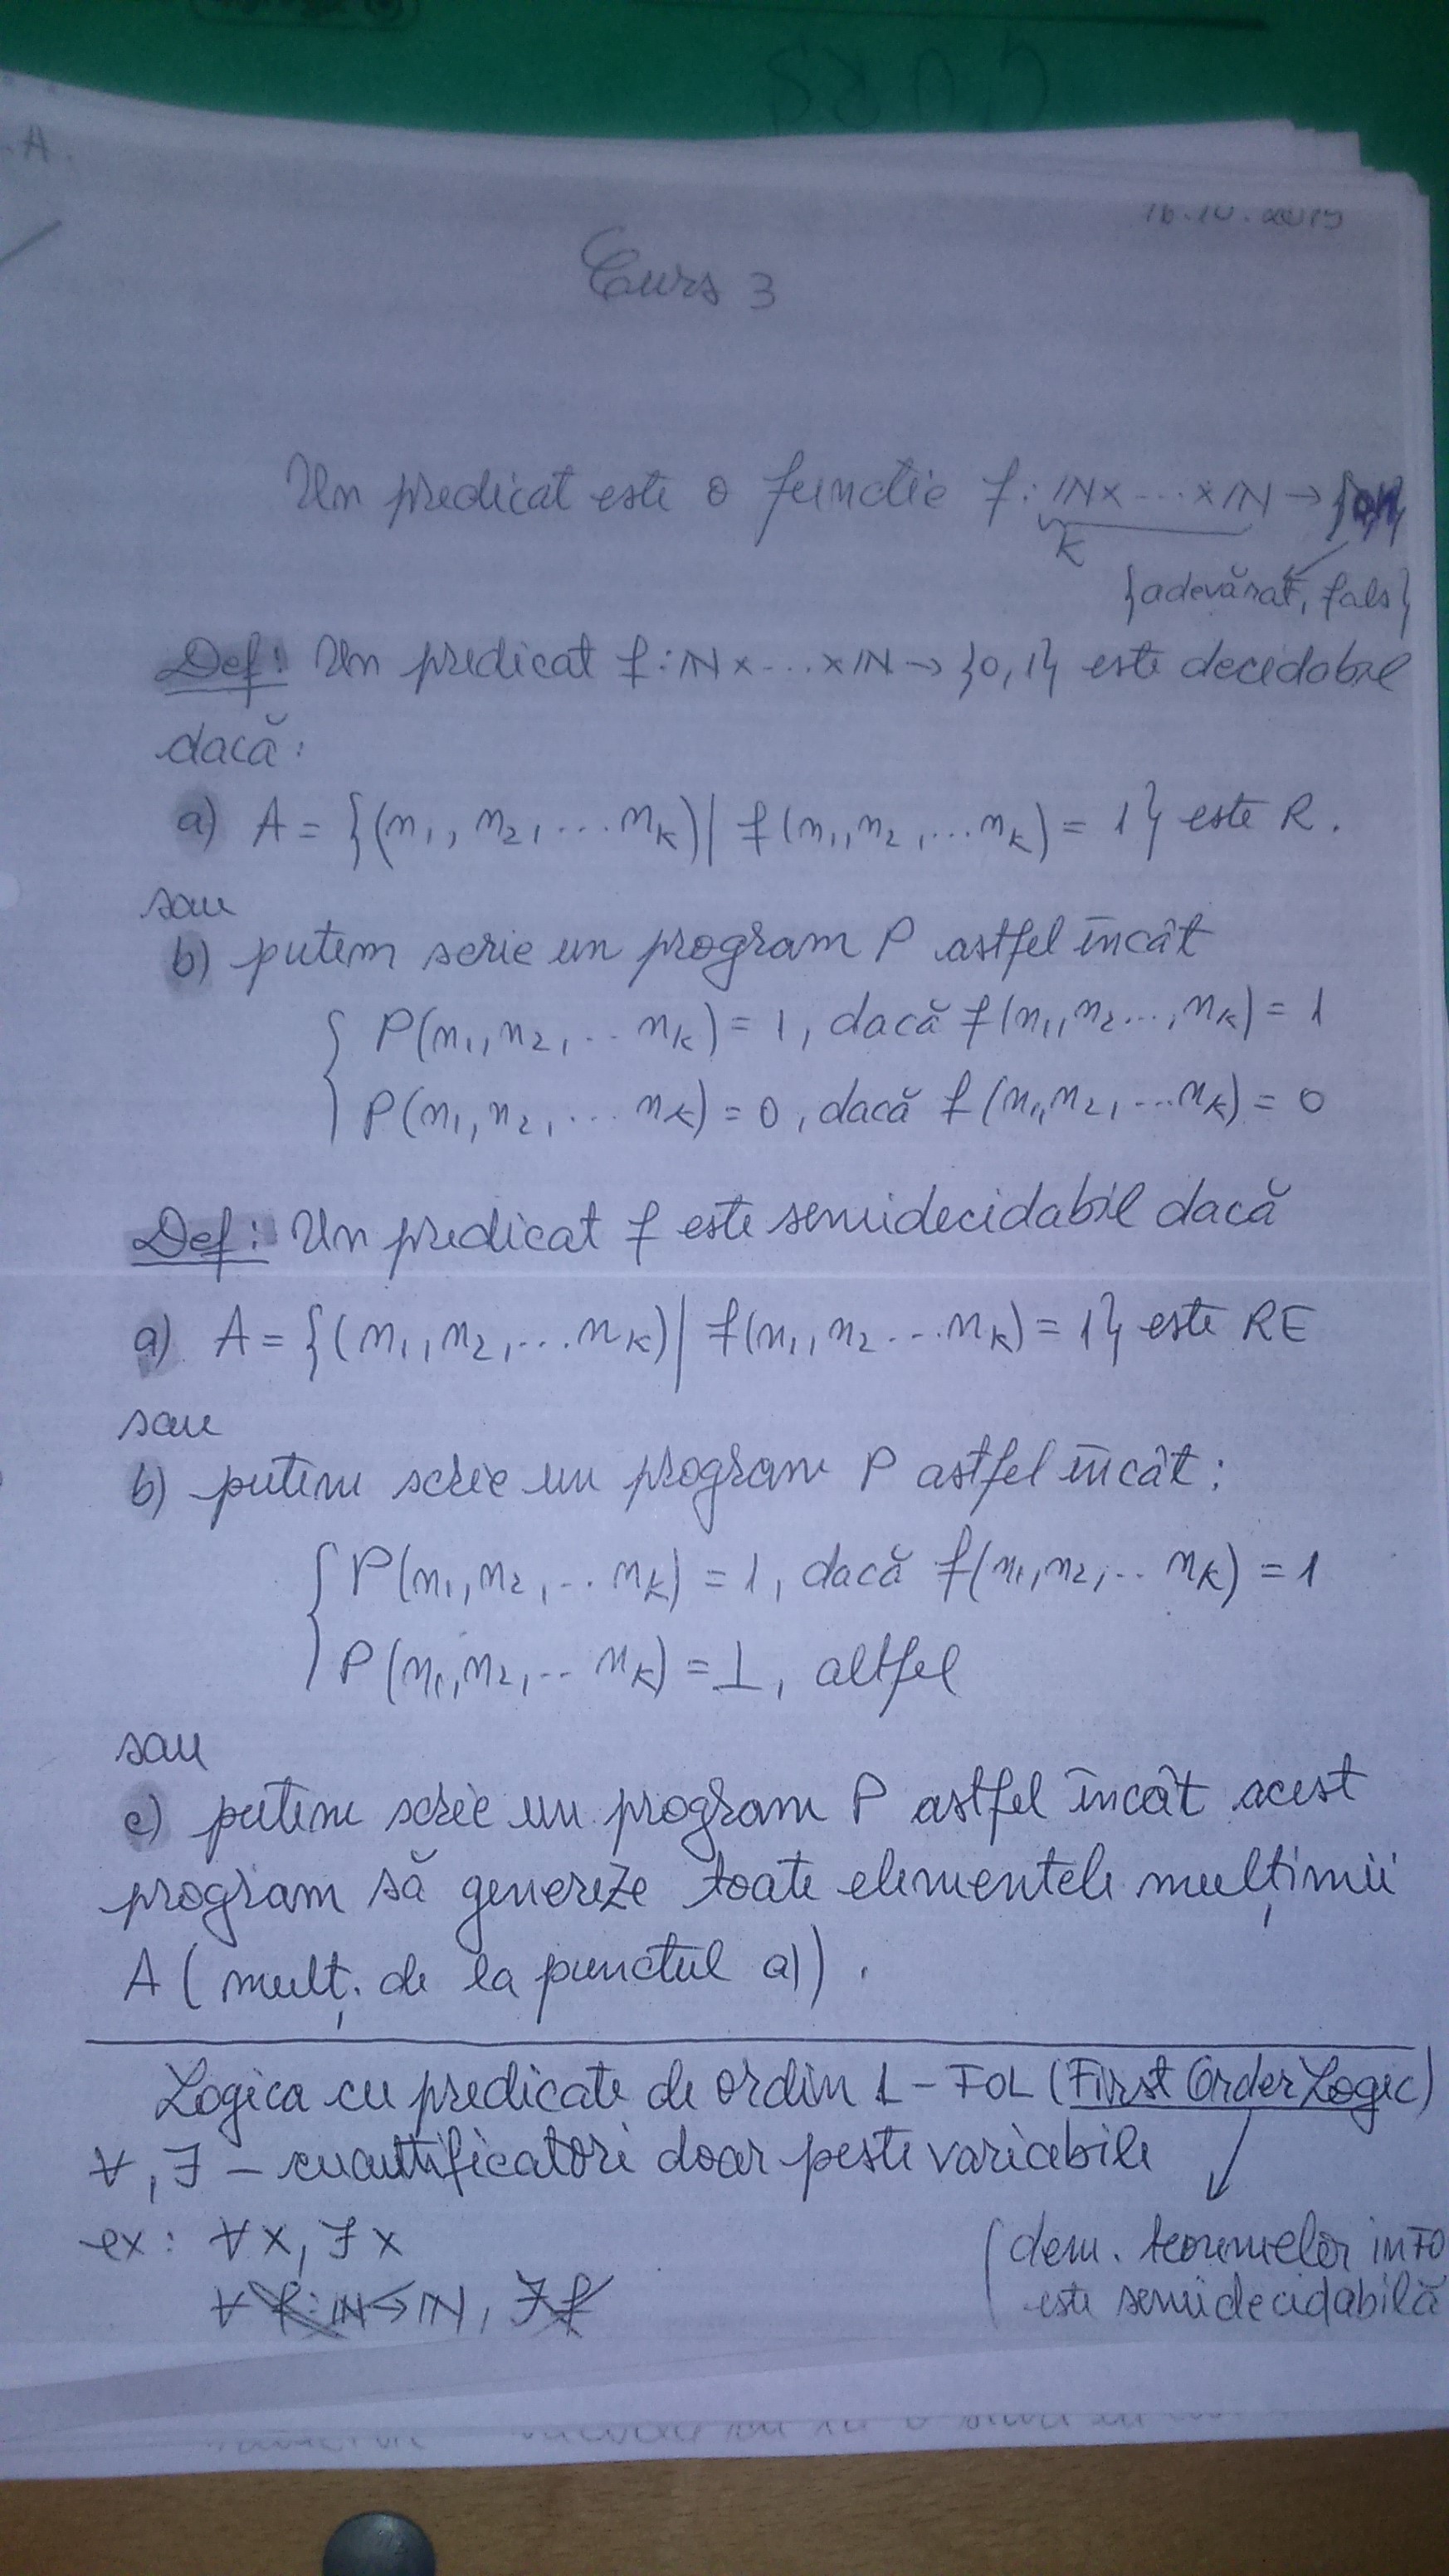 CURS
A.
Curs 3
Un predicat este o functie f: ℕ×...×ℕ → {0,1}
k
{adevărat, fals}
Def: Un predicat f: ℕ×...×ℕ → {0,1} este decidabil
dacă:
a) A = {(n₁, n₂, ... nₖ) | f(n₁, n₂, ... nₖ) = 1} este R.
sau
b) putem scrie un program P astfel încât
P(n₁, n₂, ... nₖ) = 1, dacă f(n₁, n₂ ..., nₖ) = 1
P(n₁, n₂, ... nₖ) = 0, dacă f(n₁, n₂, ... nₖ) = 0
Def: Un predicat f este semidecidabil dacă
a) A = {(n₁, n₂, ... nₖ) | f(n₁, n₂ ... nₖ) = 1} este RE
sau
b) putem scrie un program P astfel încât:
P(n₁, n₂, .. nₖ) = 1, dacă f(n₁, n₂, .. nₖ) = 1
P(n₁, n₂, .. nₖ) = ⊥, altfel
sau
c) putem scrie un program P astfel încât acest
program să genereze toate elementele mulțimii
A (mulț. de la punctul a)).
Logica cu predicate de ordin 1 - FOL (First Order Logic)
∀, ∃ - cuantificatori doar peste variabile
ex: ∀x, ∃x
∀ f: ℕ→ℕ, ∃f
(dem. teoremelor in FO
este semidecidabilă